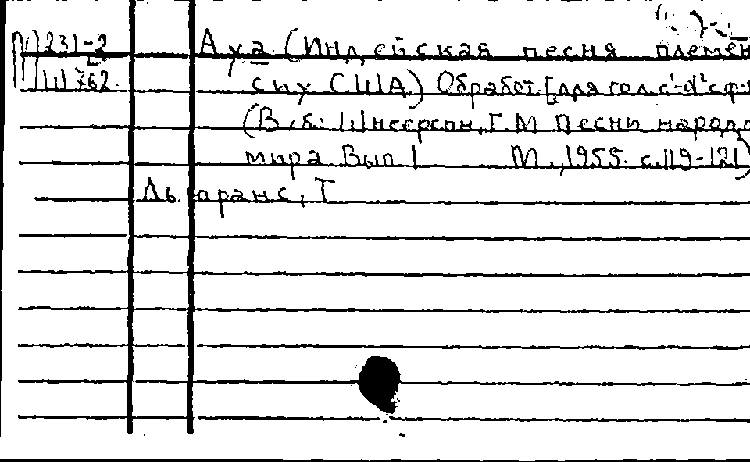 231-2 Ауа (Индейская песня племен
111762 сиу США.) Обработ. [для гол. с¹-d² с ф-
(В сб.: Шнеерсон, Г.М Песни народо
мира. Вып 1 М., 1955. с. 119-121)
аранс, Т